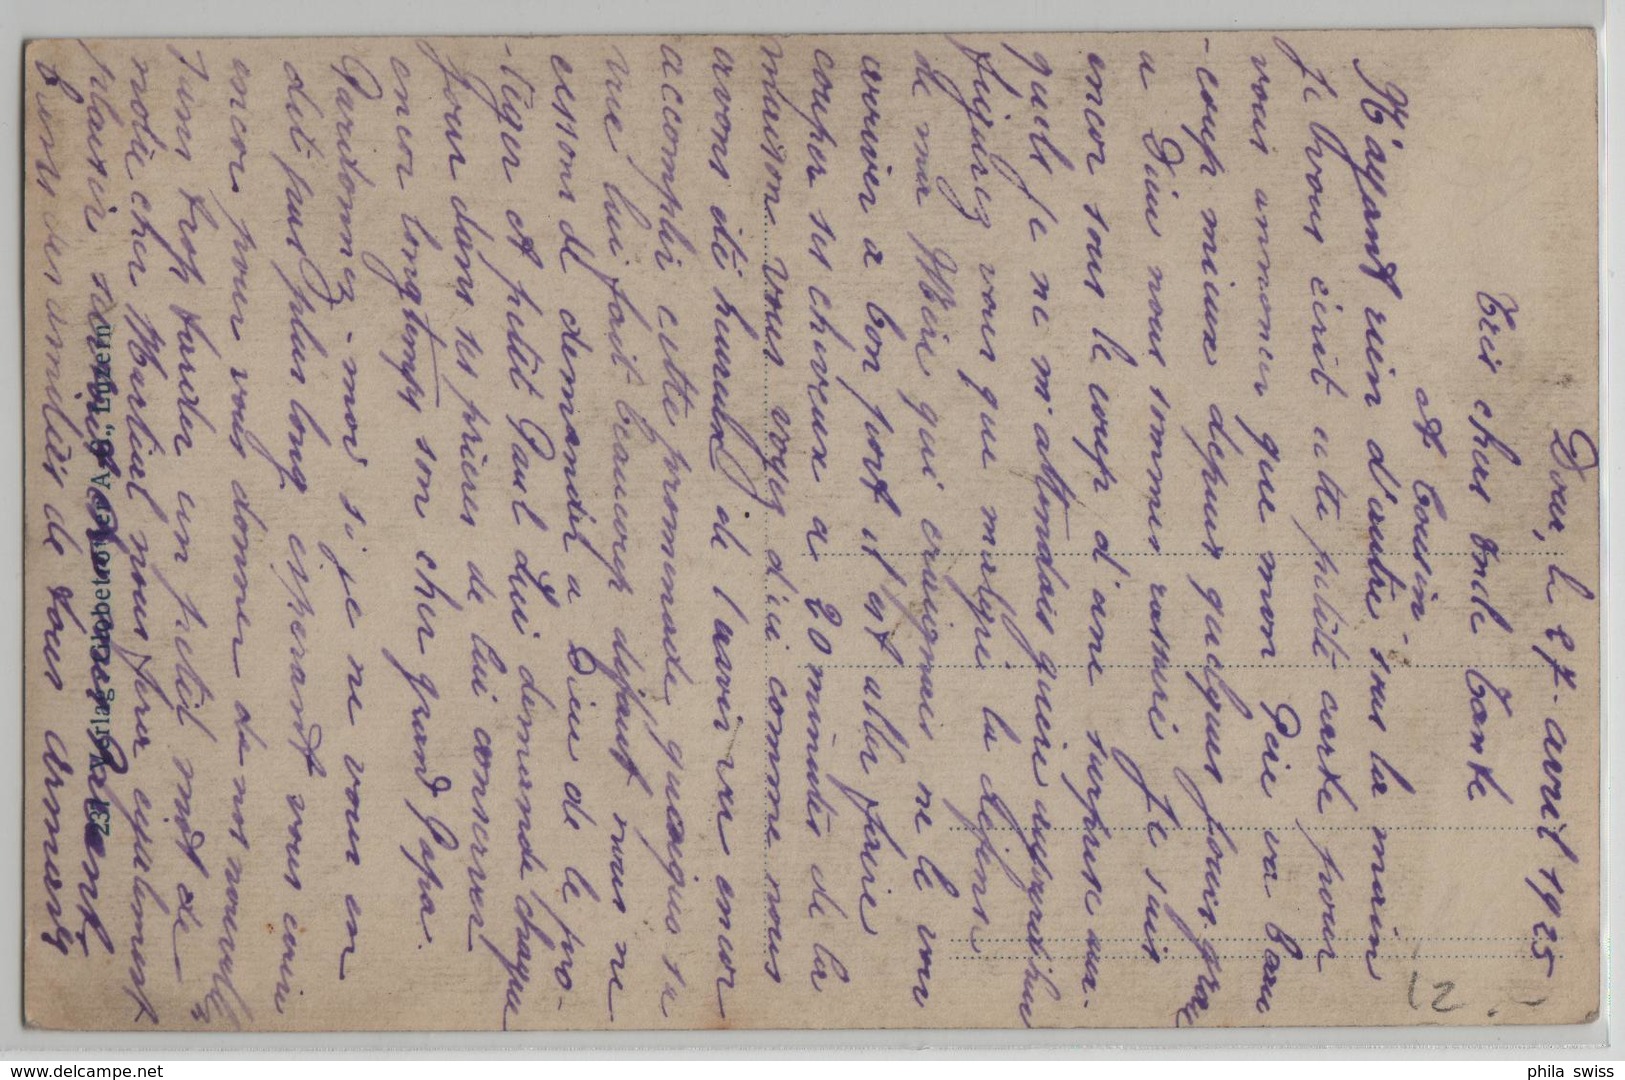 Doux, le 27 avril 1925
Très chers oncle Tante
et Cousin.
N'ayant rien d'autre sous la main
Je vous écrit cette petite carte pour
vous annoncer que mon Père va beau
-coup mieux depuis quelques jours. grace
a Dieu nous sommes rassuré Je suis
encor sous le coup d'une surprise au-
quels je ne m'attendais guère aujourd'hui
figurez vous que malgré la défense
de ma Mère qui craignais ne le voir
arriver a bon port il est aller faire
couper ses cheveux a 20 minutes de la
maison vous voyez d'ici comme nous
avons été heureux de l'avoir vu encor
accomplir cette promenade quoique sa
vue lui fait beaucoup défaut nous ne
cessons de demander a Dieu de le pro-
-téger et petit Paul lui demande chaque
jour dans ses prières de lui conserver
encor longtemps son cher grand Papa.
Pardonnez-moi si je ne vous en
dit pas plus long espérant vous écrire
encor pour vous donner de nos nouvelles
sans trop tarder un petit mot de
notre cher Martial nous fera également
plaisir
Bons des amitiés de tous
231 Verlag Lichtbetrieb A.G., Luzern
12.-
www.delcampe.net
phila swiss